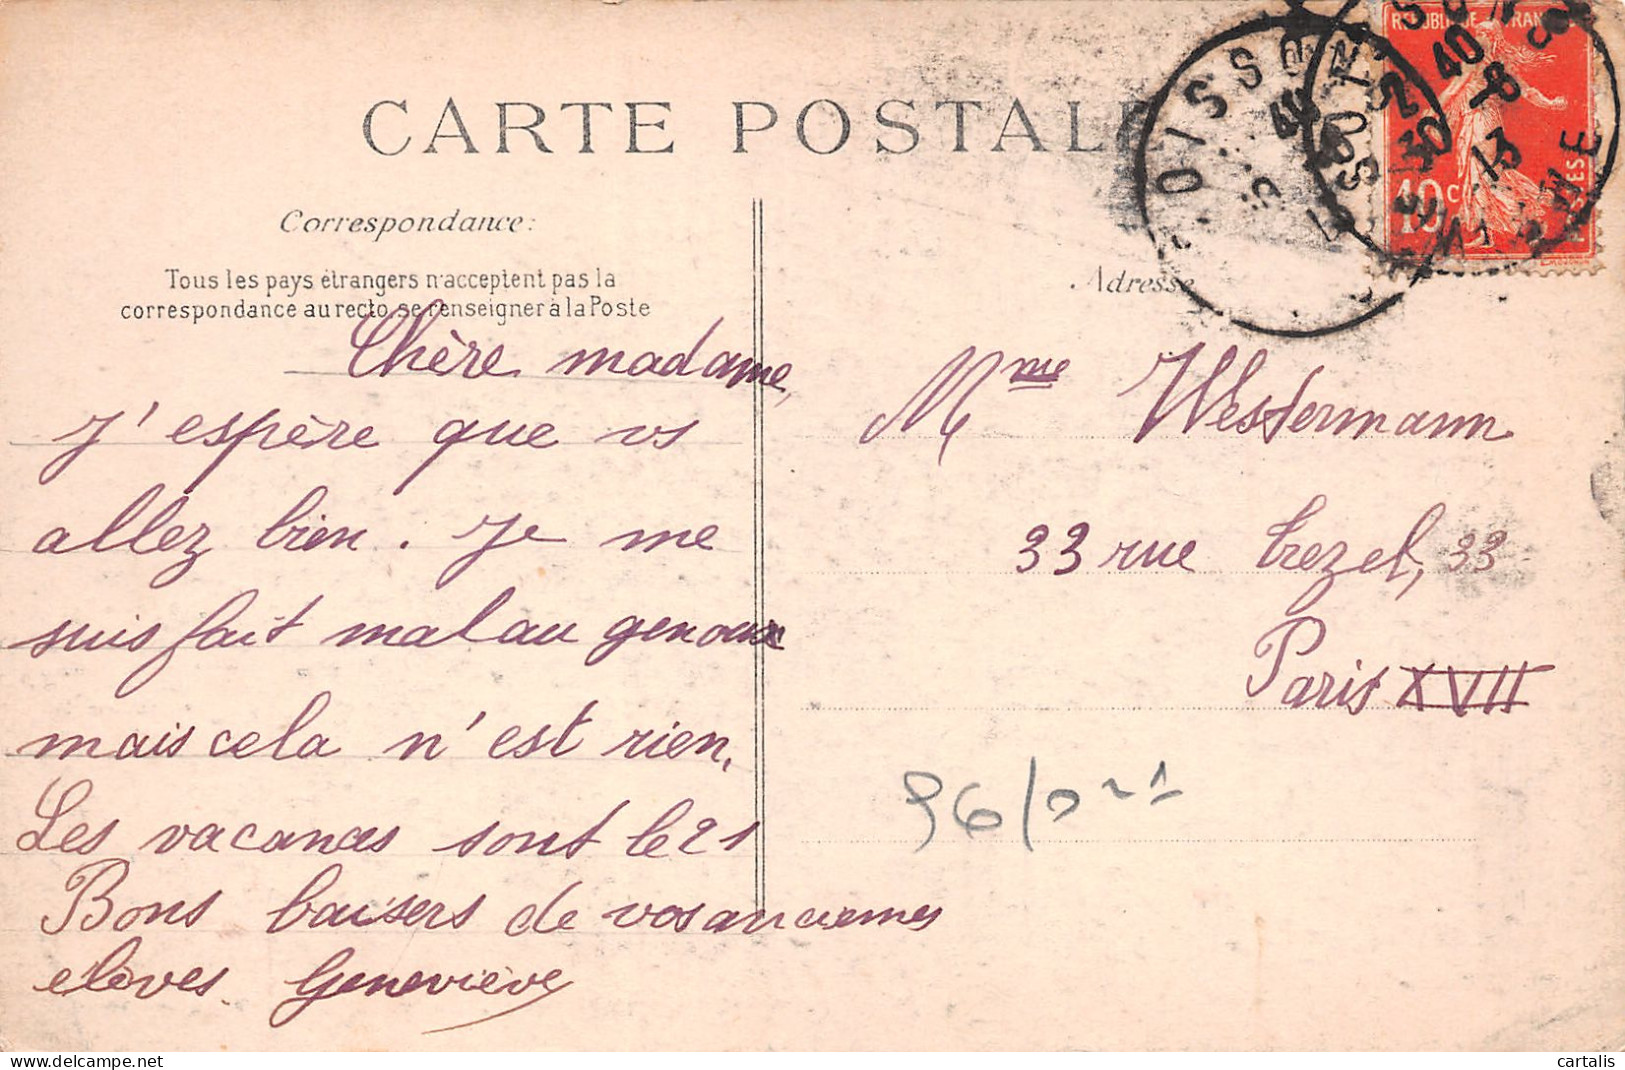 CARTE POSTALE
Correspondance:
Tous les pays étrangers n'acceptent pas la
correspondance au recto, se renseigner à la Poste
Chère madame,
J'espère que vs
allez bien. Je me
suis fait mal au genoux
mais cela n'est rien.
Les vacances sont le 21
Bons baisers de vos anciennes
elèves. Geneviève
Adresse
Mme Westermann
33 rue Trezel, 33
Paris XVII
96/
SOISSONS
AISNE
10c
cartalis